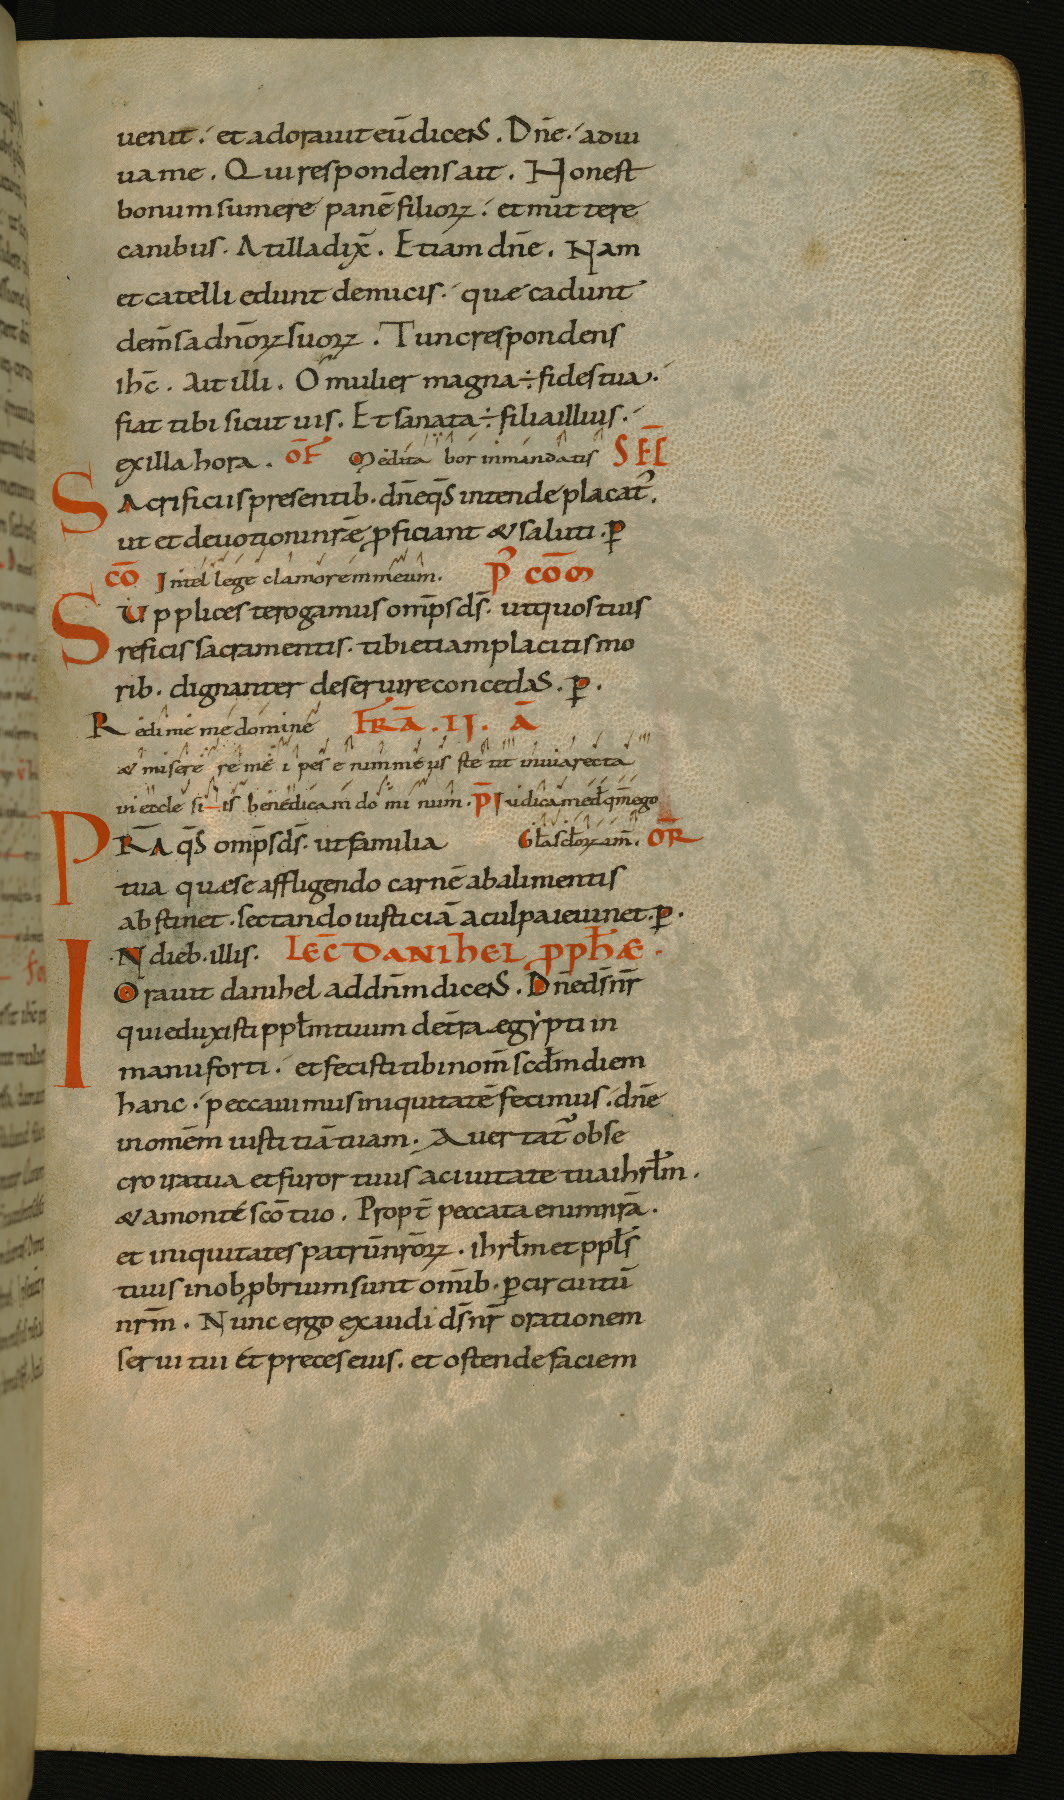 uenit. et adorauit eū dicens. Dn̄e. adiu
uame. Qui respondens ait. Non est
bonum sumere panē filioꝝ. et mittere
canibus. At illa dix̄. Etiam dn̄e. Nam
et catelli edunt de micis. quæ cadunt
de mensa dn̄oꝝ suoꝝ. Tunc respondens
ihc̄. Ait illi. O mulier magna ÷ fides tua.
fiat tibi sicut uis. Et sanata ÷ filia illius.
ex illa hora. OF̄ Meditabor in mandatis SEC̄
Sacrificiis presentib. dn̄e qs̄ intende placat᷒.
ut et deuotioni nr̄æ ꝓficiant & saluti. ꝑ
CŌ Intellege clamorem meum. P᷒ COM̄
Supplices te rogamus omp̄s ds̄. ut quos tuis
reficis sacramentis. tibi etiam placitis mo
rib. dignanter deseruire concedas. ꝑ.
Redime me domine FR̄A. II. Ā
& miserere mei pes enim meus stetit in uia recta
in ecclesiis benedicam dominum. P̄ Iudica me dn̄e qm̄ ego
PR̄A qs̄ omp̄s ds̄. ut familia Gła scłoꝝ am̄. OR̄
tua quæ se affligendo carnē ab alimentis
abstinet. sectando iusticiā a culpa ieiunet. ꝑ.
IN dieb. illis. LEC̄ DANIHEL ꝓPHÆ.
Orauit danihel ad dn̄m dicens. Dn̄e ds̄ nr̄
qui eduxisti ppłm tuum de tr̄a egypti in
manu forti. et fecisti tibi nom̄ scdm̄ diem
hanc. peccauimus iniquitatē fecimus. dn̄e
in omēm iustitiā tuam. Auertat᷒ obse
cro ira tua et furor tuus a ciuitate tua ihrłm.
& a monte scō tuo. Propt̄ peccata enim nr̄a.
et iniquitates patrū nr̄oꝝ. ihrłm et ppłs
tuus in obꝓbrium sunt om̄ib. ꝑ circuitū
nr̄m. Nunc ergo exaudi ds̄ nr̄ orationem
serui tui et preces eius. et ostende faciem